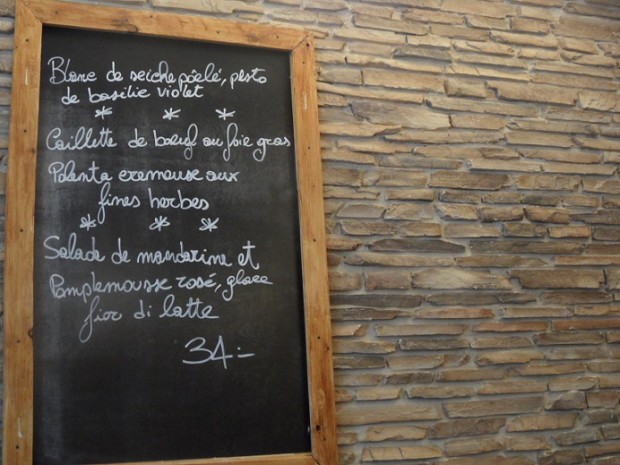 Blanc de seiche poêlé, pesto
de basilic violet
* * *
Caillette de bœuf au foie gras
Polenta crémeuse aux
fines herbes
* * *
Salade de mandarine et
Pamplemousse rosé, glace
fior di latte
34.-